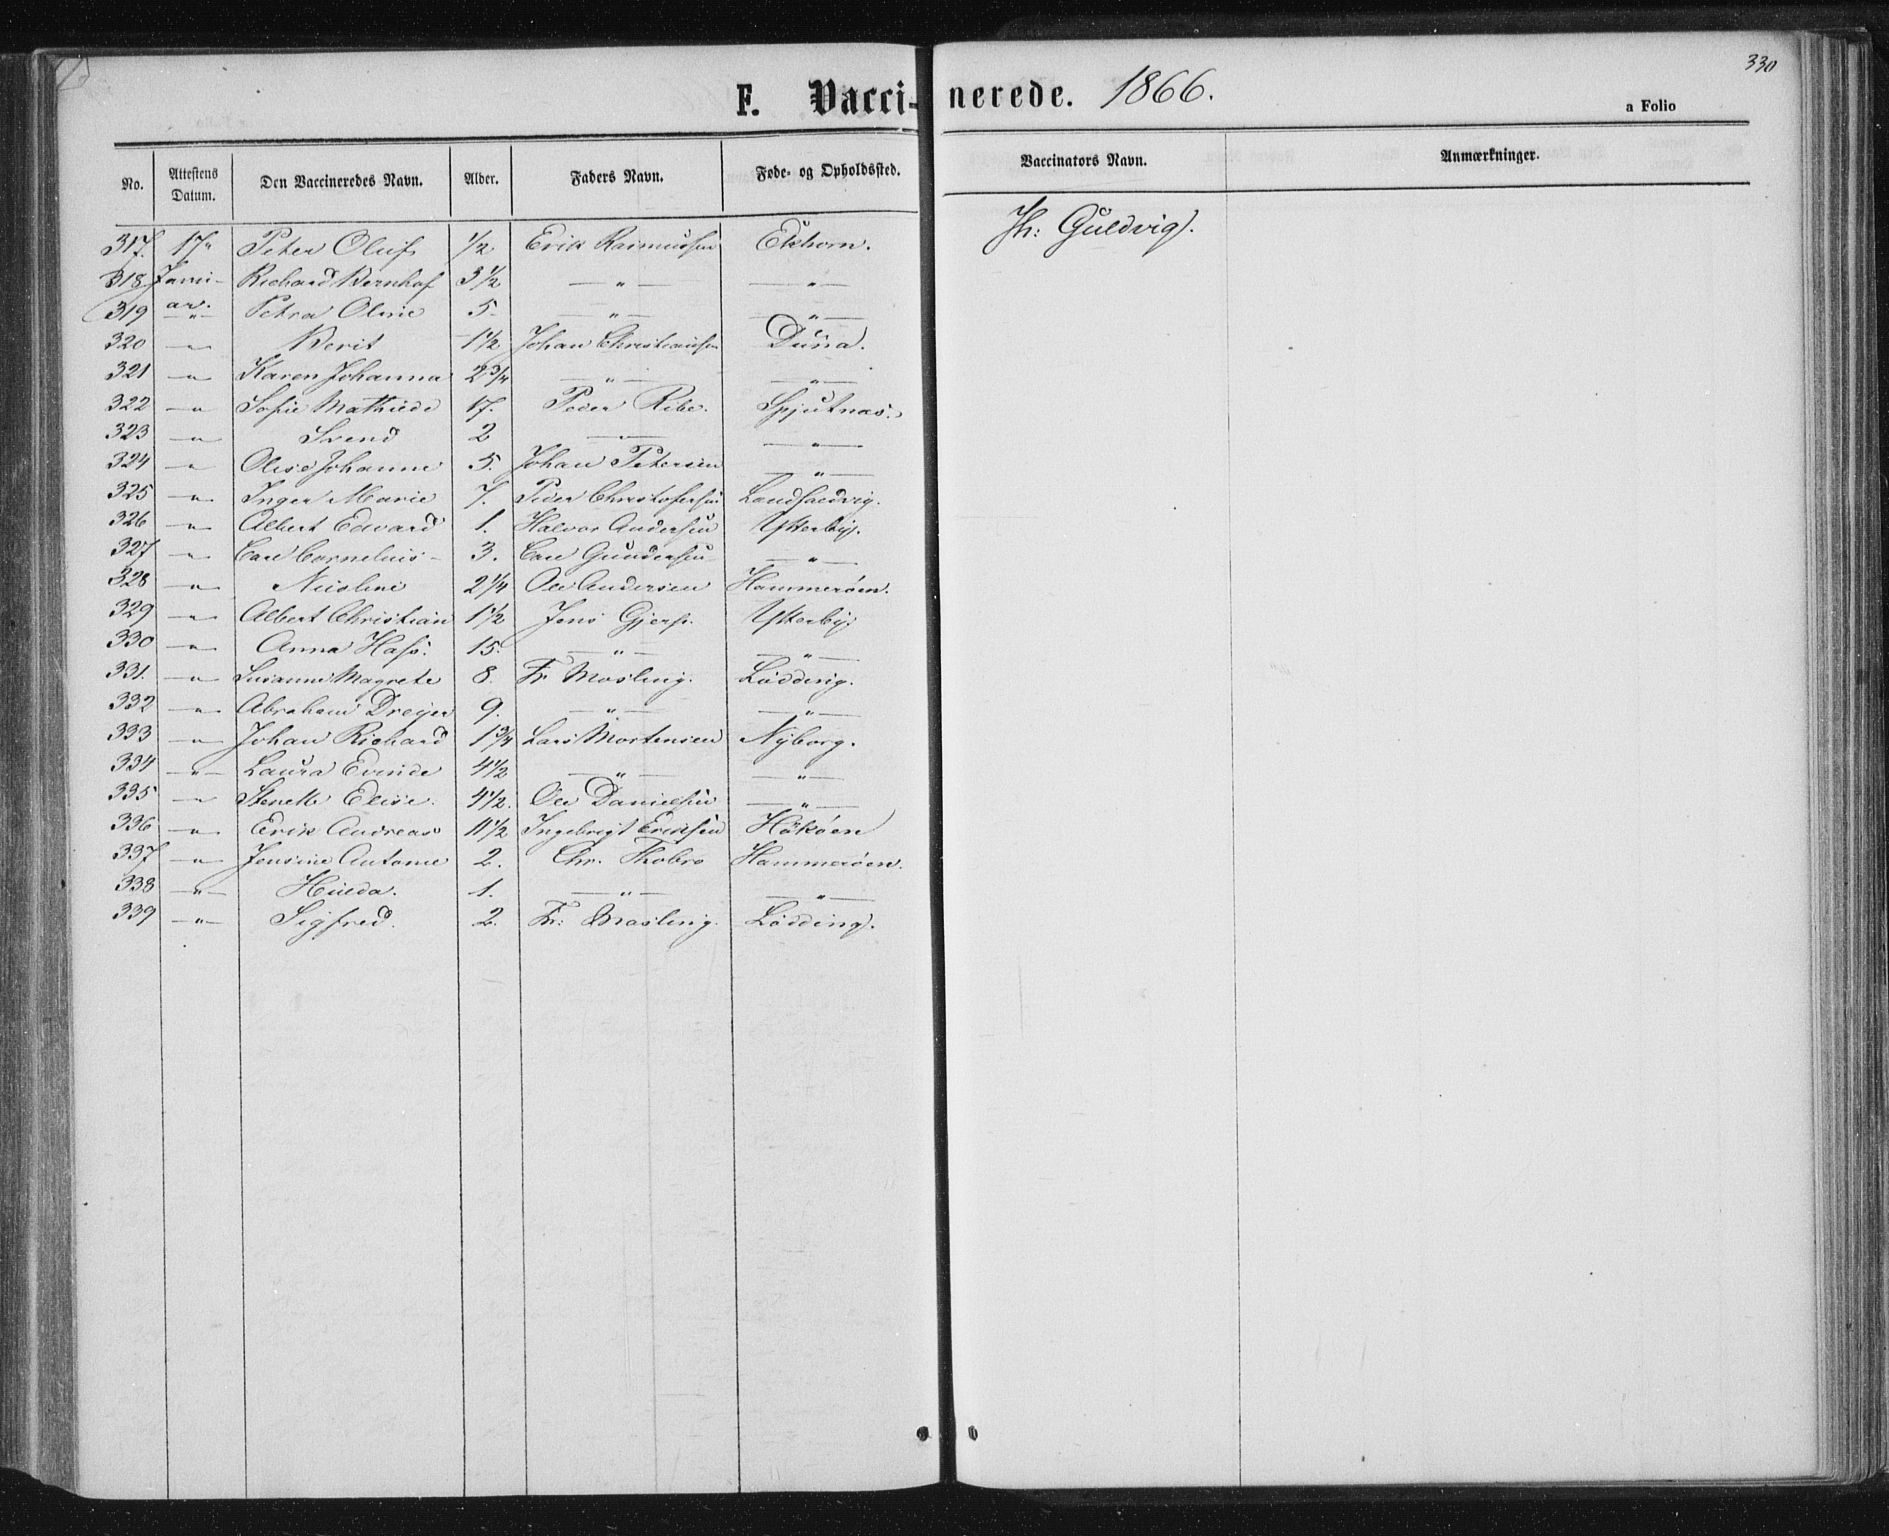 330
F. Vaccinerede. 1866.
a Folio
No. Attestens Datum. Den Vaccineredes Navn. Alder. Faders Navn. Føde- og Opholdssted. Vaccinators Navn. Anmærkninger.
317. 17de Peter Oluf 1/2 Erik Rasmussen Ekhorn. Guldvig.
318 Janu- Richard Bernhof 3 1/2 — " — — " —
319 ar. — " — Petra Oline 5. — " — — " —
320 — " — Berit 1 1/2 Johan Christiansen Duna.
321 — " — Karen Johanna 2 3/4 — " — — " —
322 — " — Sofie Mathilde 17. Peder Ribe. Spjutnæs.
323 — " — Svend 2 — " — — " —
324 — " — Olise Johanne 5. Johan Petersen — " —
325 — " — Inger Marie 7. Peder Christofersen
326 — " — Albert Edvard 1. Halvor Andersen Ytterby.
327 — " — Carl Cornelius 3. Carl Gundersen — " —
328 — " — 2 1/4 Ole Andersen Hammerøen.
329 — " — Albert Christian 1 1/2 Jens Ytterby.
330 — " — Anna 15. — " — — " —
331. — " — Susanne Magrete 8. Fr Mosling. Lødding.
332 — " — Abraham Dreyer 9. — " — — " —
333 — " — Johan Richard 1 3/4 Lars Mortensen Nyborg.
334 — " — Laura 4 1/2 — " — — " —
335 — " — Elise. 4 1/2. Ole Danielsen — " —
336 — " — Erik Andreas 11 1/2 Ingebrigt Eriksen
337 — " — Jensine Antonie 2. Chr. Thobro Hammerøen.
338 — " — Hulda. 1. — " — — " —
339 — " — Sigfred. 2. Fr: Mosling. Lødding.